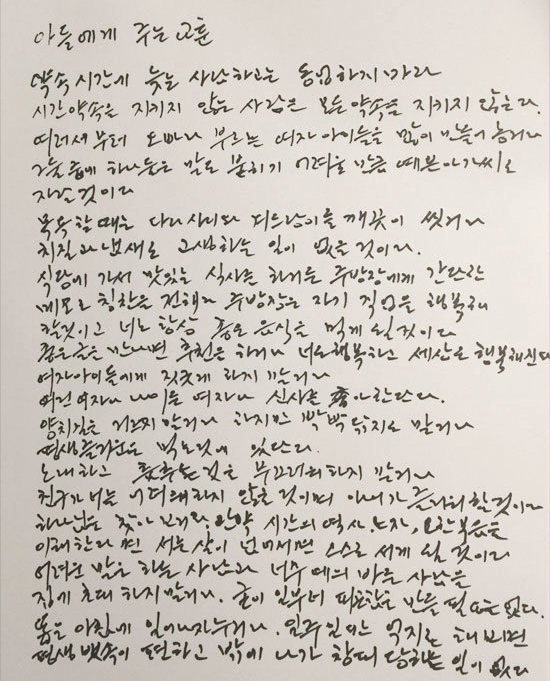 아들에게 주는 교훈
약속시간에 늦는 사람하고는 동업하지 마라
시간약속을 지키지 않는 사람은 모든 약속을 지키지 않는다.
어려서부터 오빠라 부르는 여자 아이들을 많이 만들어 놓거라
그들 중에 하나는 말도 붙히기 어려울 만큼 예쁜 아가씨로
자랄 것이다
목욕할 때는 다리 사이와 겨드랑이를 깨끗이 씻거라
치질과 냄새로 고생하는 일이 없을 것이다.
식당에 가서 맛있는 식사를 하거든 주방장에게 간단한
메모로 칭찬을 전해라 주방장은 자기 직업을 행복해
할것이고 너는 항상 좋은 음식을 먹게 될 것이다
좋은 글을 만나면 추천을 하거라 너도 행복하고 세상도 행복해진다
여자아이들에게 짓궂게 하지 말거라
어린 여자나 나이든 여자나 신사를 좋아한단다.
양치질은 거르지 말거라 하지만 박박 닦지도 말거라
평생 즐거움은 먹는것에 있단다.
노래하고 춤추는 것을 부끄러워하지 말거라
친구가 너를 어려워하지 않을 것이며 아내가 즐거워 할것이다
하나님을 찾아 보거라. 만약 시간의 역사, 노자, 요한복음을
이해한다면 서른살이 넘어서면 스스로 서게 될 것이다
어려운 말을 하는 사람과 너무 예의 바른 사람은
집에 초대하지 말거라. 굳이 일부러 피곤함을 만들 필요는 없다.
똥은 아침에 일어나자 누거라. 일주일만 억지로 해보면
평생 뱃속이 편하고 밖에 나가 창피 당하는 일이 없다